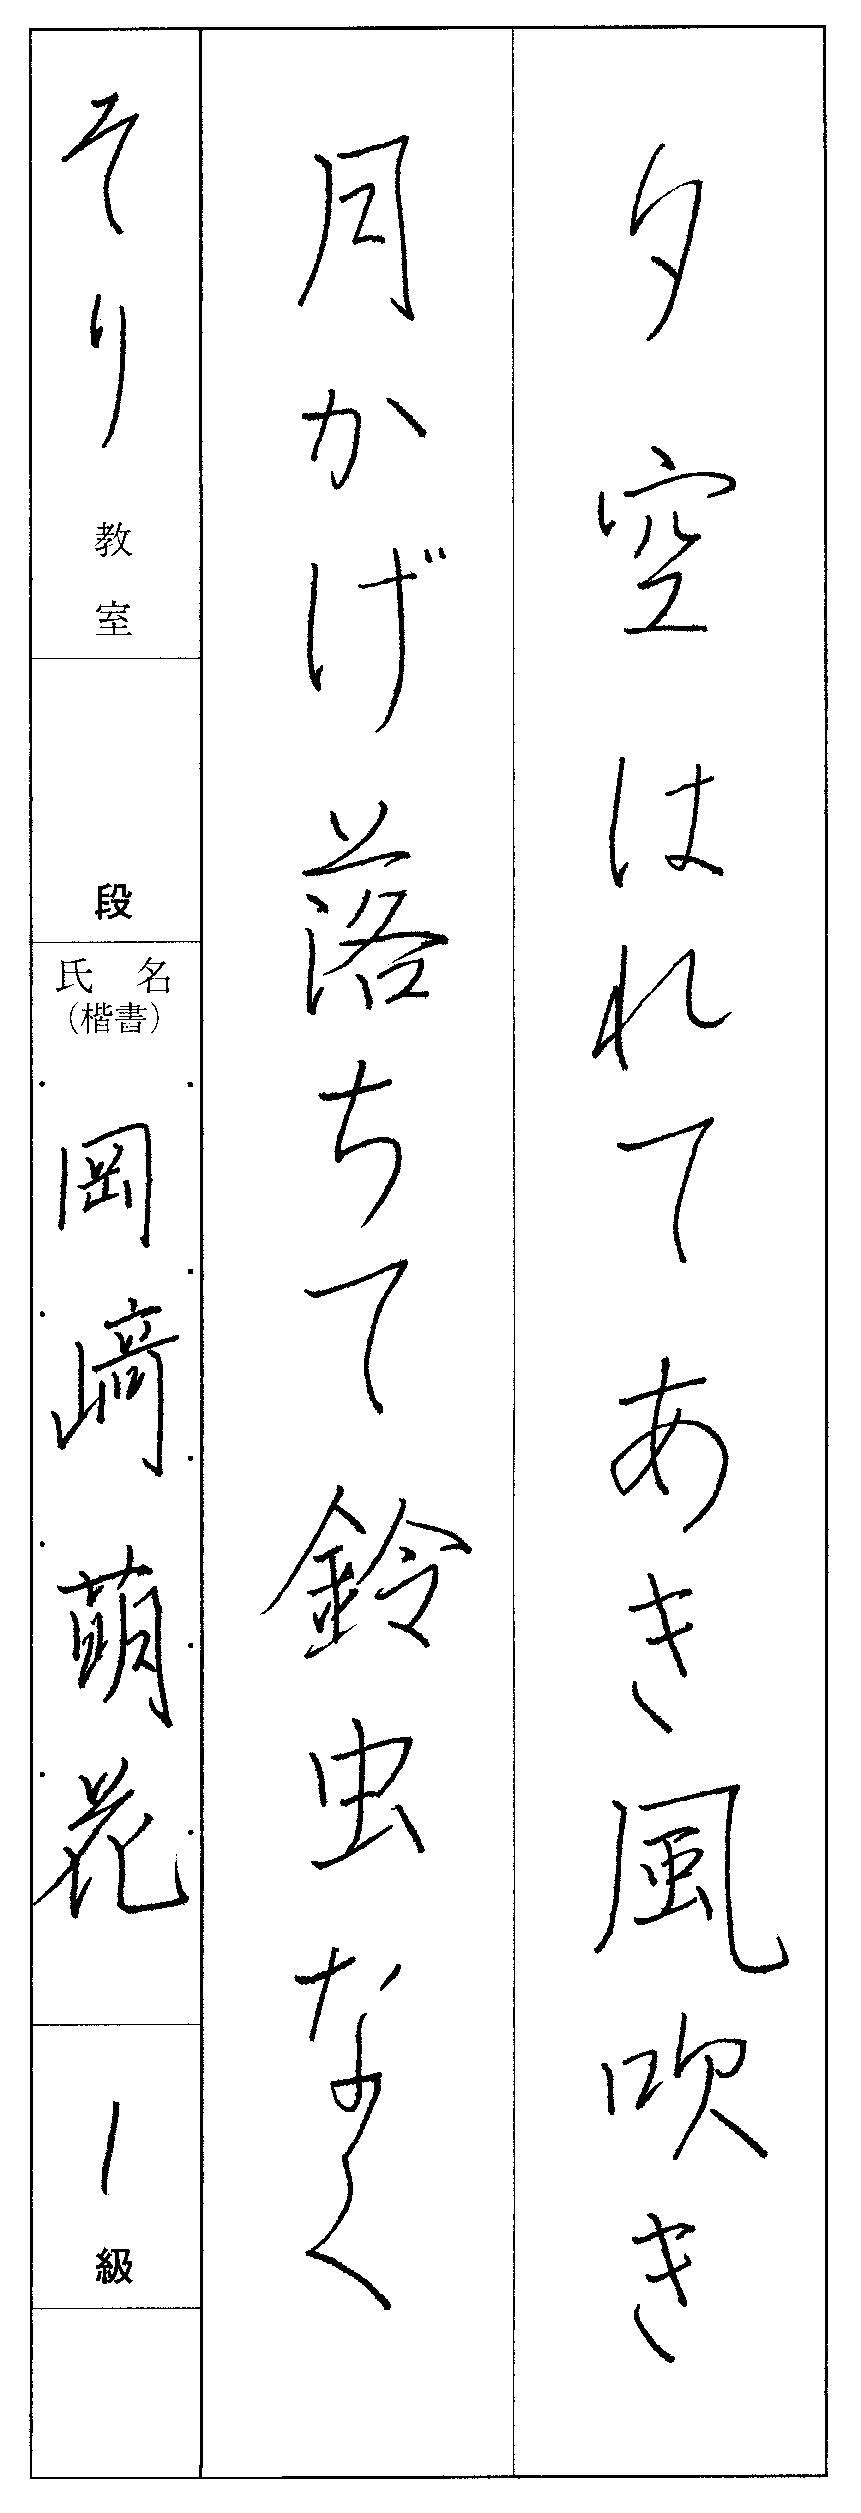 夕空はれてあき風吹き
月かげ落ちて鈴虫なく
そり教室
段
氏名
（楷書）
岡﨑萌花
1級